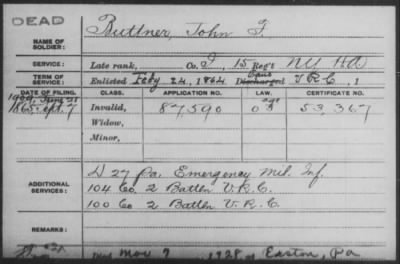 DEAD
NAME OF SOLDIER: Buttner, John F.
SERVICE: Late rank, Co. I, 15 Reg't NY HA
TERM OF SERVICE: Enlisted Feby 24, 1864 Discharged V.R.C., 1
DATE OF FILING. CLASS. APPLICATION NO. LAW. CERTIFICATE NO.
1865 Sept. 7 Invalid, 87590 53,367
Widow,
Minor,
ADDITIONAL SERVICES:
D 27 Pa. Emergency Mil. Inf.
104 Co. 2 Battln V.R.C.
100 Co. 2 Battln V.R.C.
REMARKS:
Died Nov 9 1928 at Easton, Pa